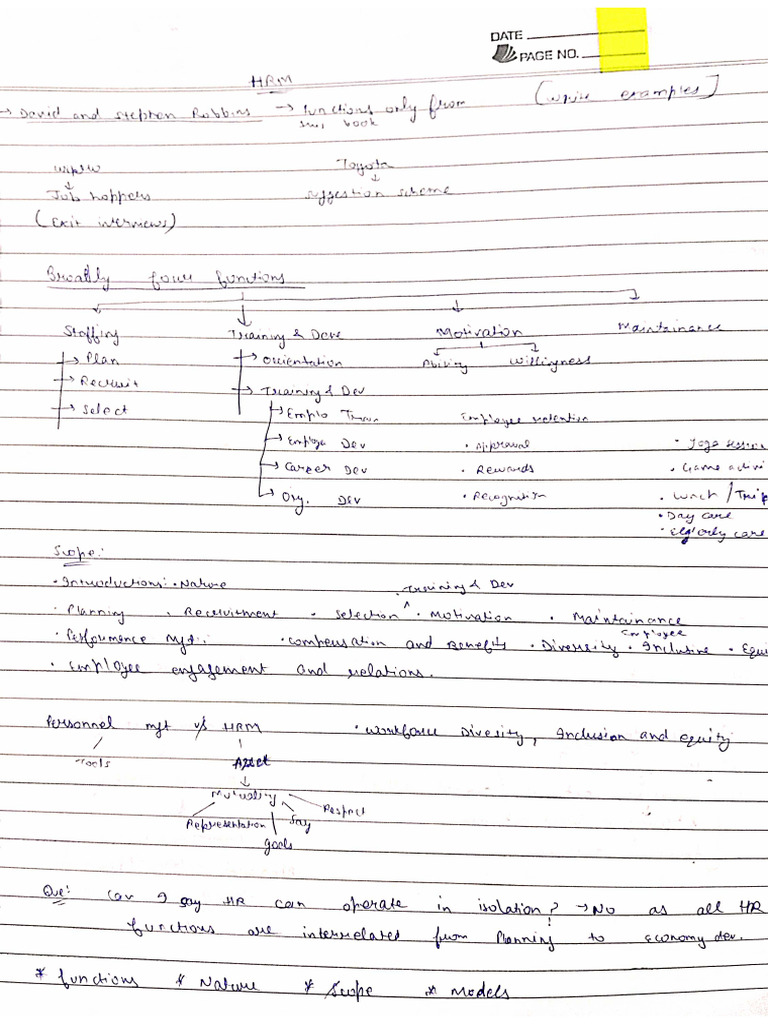 DATE
PAGE NO.
HRM
→ David and Stephen Robbins → functions only from (write examples)
book
Wipro Toyota
↓ ↓
Job hoppers suggestion scheme
(Exit interviews)
Broadly four functions
Staffing Training & Deve Motivation Maintainance
→ Plan → Orientation Ability Willigness
→ Recruit → Training & Dev
→ select → Emplo Train Employee retention
→ Employe Dev • Approval • Yoga sessio
→ Career Dev • Rewards • Game activi
→ Org. Dev • Recognition • Lunch / Trip
• Day care
• Elderly care
Scope:
• Introductions: • Nature • Training & Dev
• Planning • Recruitment • Selection ^ • Motivation • Maintainance
Employee
• Performence Mgt: • compensation and Benefits • Diversity • Inclusive • Equi
• Employee engagement and relations.
Personnel mgt v/s HRM • Workforce Diversity, Inclusion and equity
Tools Asset
↓
Mutuality
Representation goals Say Respect
Que: Can I say HR can operate in isolation? → No as all HR
functions are interrelated from Planning to Economy dev.
* functions * Nature * Scope * Models